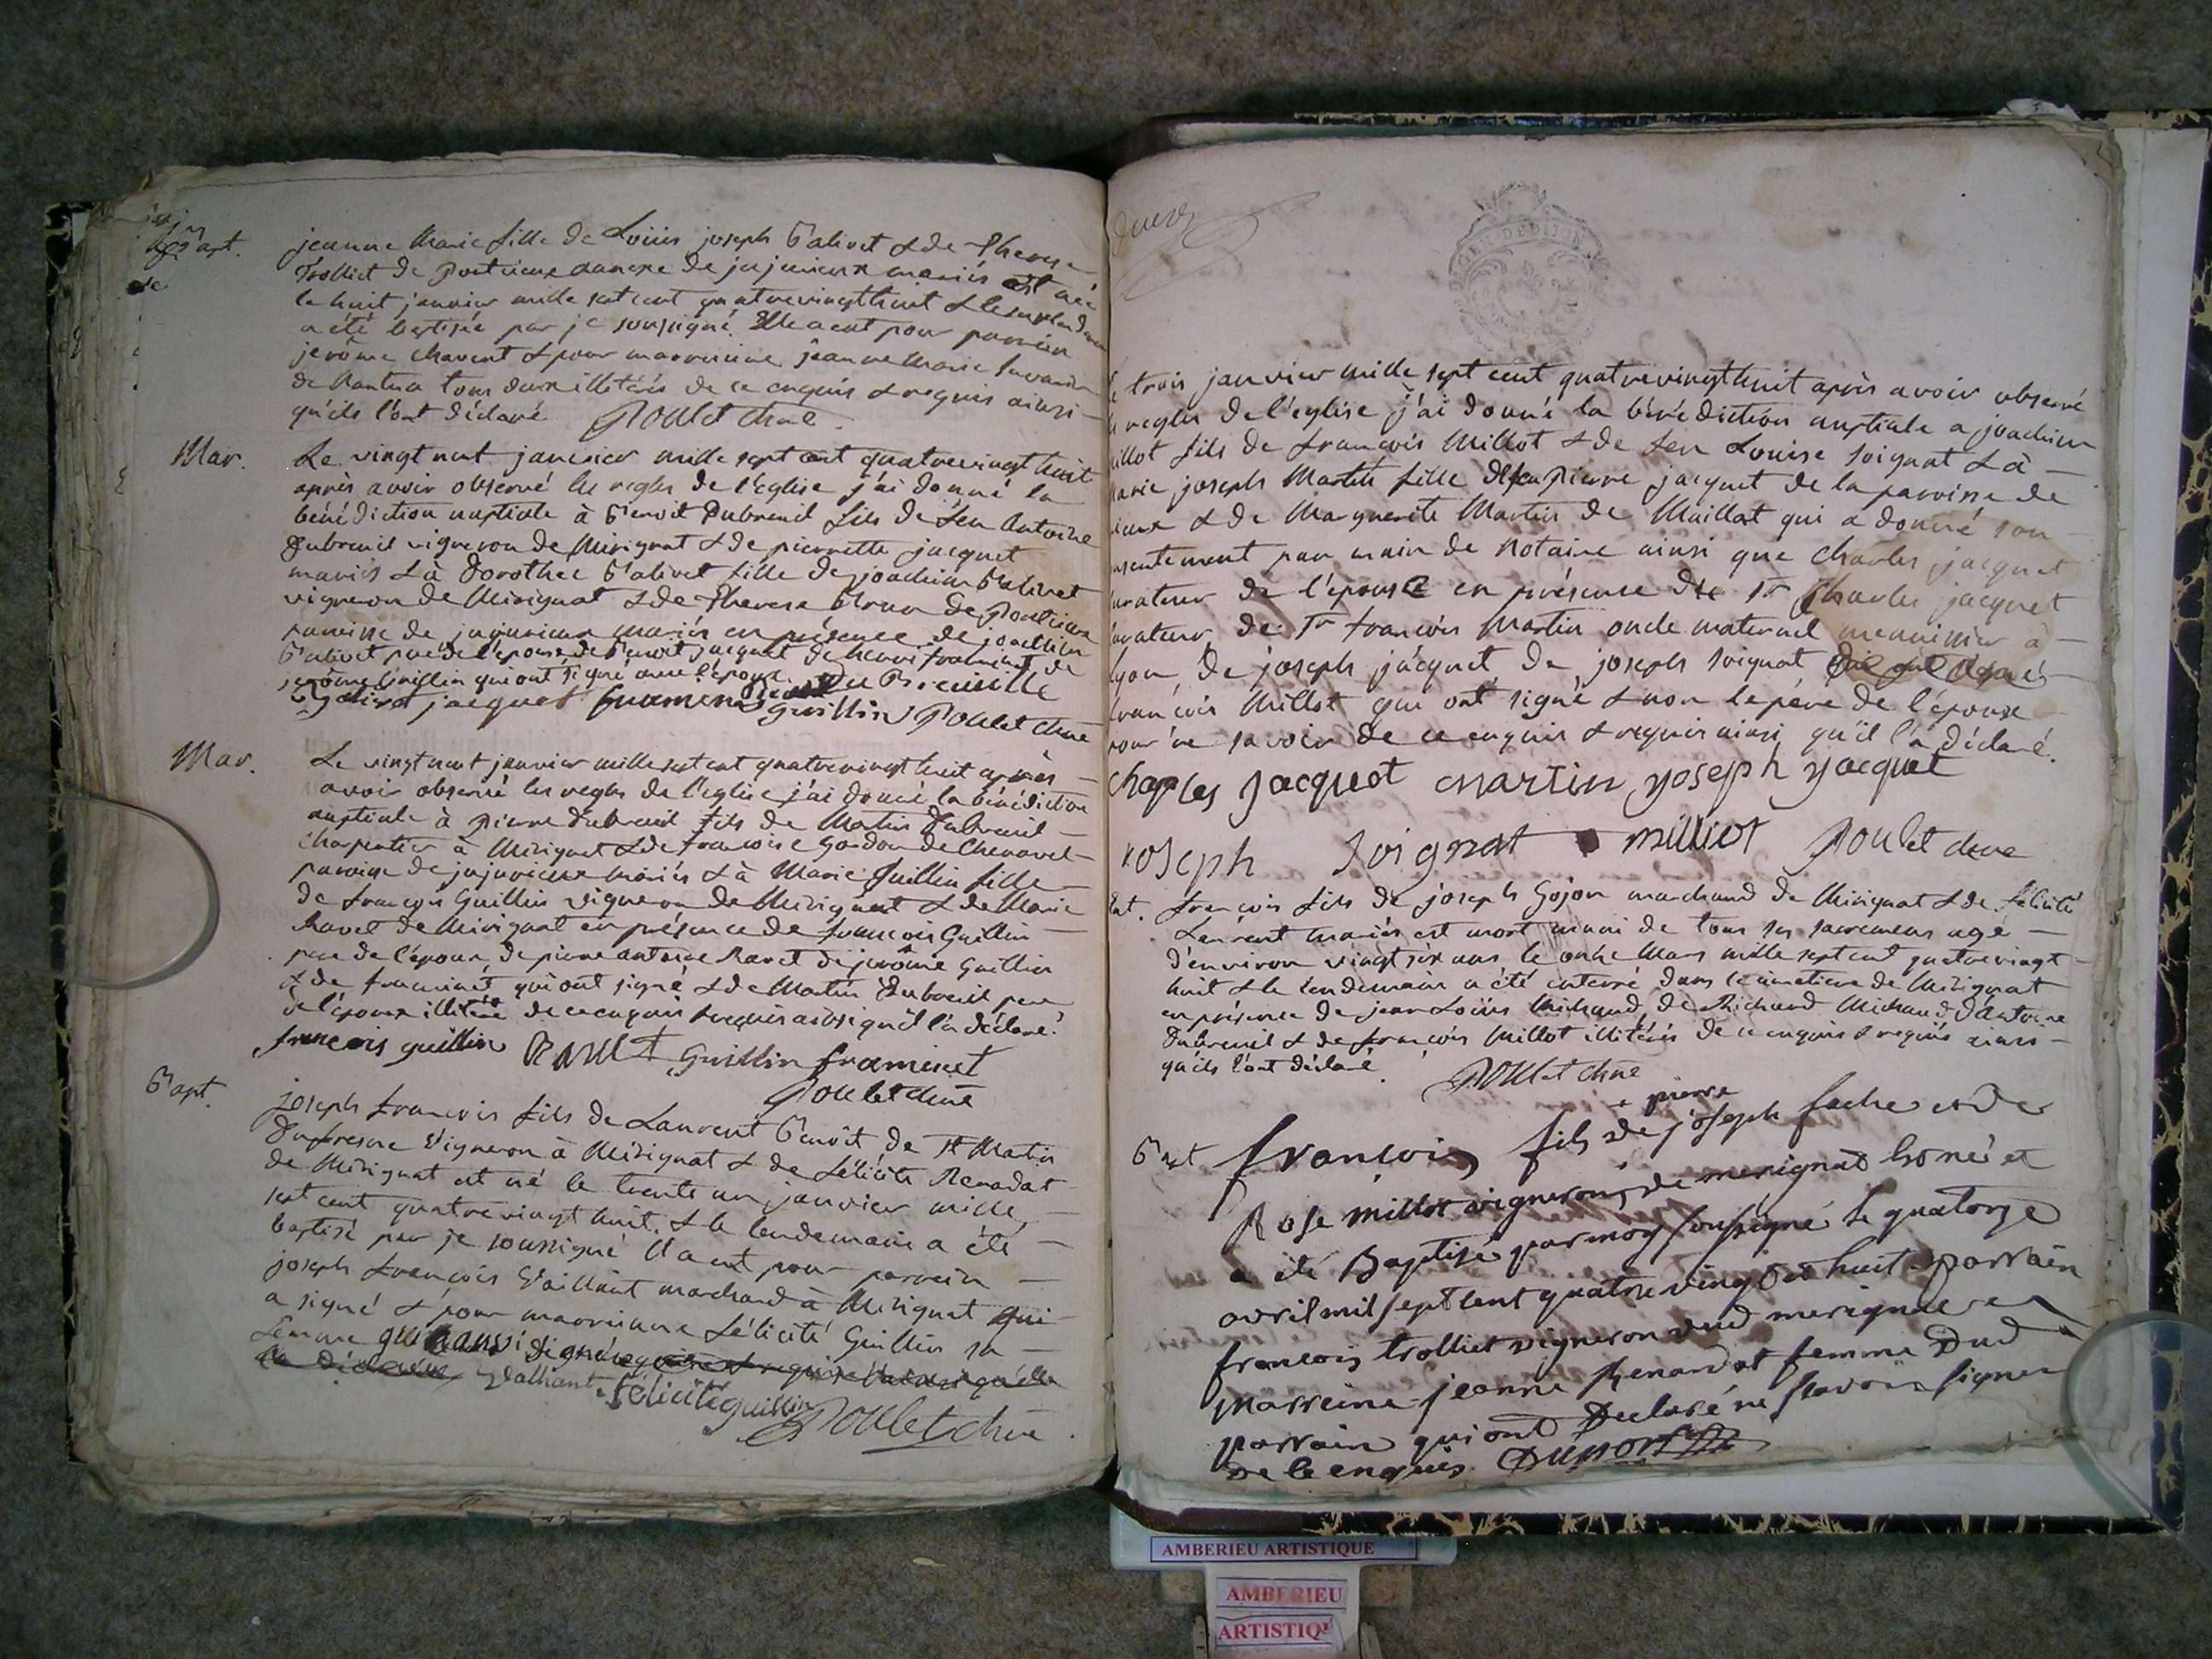 Bapt.
jeanne Marie fille de Louis joseph Balivet & de Therese
Trolliet de Poncieux annexe de jujurieux mariés est née
le huit janvier mille sept cent quatrevingt huit & le
a été baptisée par je soussigné. Elle a eut pour parrein
jerôme Chavent & pour marreinne jeanne Marie
de Nantua tous deux illitérés de ce enquis & requis ainsi
qu'ils l'ont déclaré Poulet curé
Mar.
Le vingt neuf janvier mille sept cent quatrevingt huit
après avoir observé les regles de l'église j'ai donné la
bénédiction nuptiale à Benoit Dubreuil fils de feu Antoine
Dubreuil vigneron de Mérignat & de pierrette jacquet
mariés & à Dorothée Balivet fille de joachim Balivet
vigneron de Mirignat & de Therese de Poncieux
paroisse de jujurieux mariés en présence de joachim
Balivet pere de l'épouse de Benoit jacquet de henri framinet de
jerôme Guillin qui ont signé avec l'époux. Du Breuille
Balivet jacquet framinet Guillin Poulet curé
Mar.
Le vingt neuf janvier mille sept cent quatrevingt huit après
avoir observé les regles de l'église j'ai donné la bénédiction
nuptiale à pierre Dubreuil fils de Martin Dubreuil
charpentier à Mirignat & de francoise Gardon de Chenavel
paroisse de jujurieux mariés & à Marie Guillin fille
de françois Guillin vigneron de Mirignat & de Marie
Ravet de Mirignat en présence de francois Guillin
pere de l'épouse, de pierre antoine Ravet de jerôme Guillin
& de framinet qui ont signé & de Martin Dubreuil pere
de l'époux illitéré de ce enquis & requis ainsi qu'il l'a déclaré.
francois guillin Ravet Guillin framinet
Poulet curé
Bapt.
joseph francois fils de Laurent Benoit de St Martin
Dufresne Vigneron à Mirignat & de félicité Renadat
de Mirignat est né le trente un janvier mille
sept cent quatrevingt huit. & le lendemain a été
baptisé par je soussigné Il a eut pour parrein
joseph françois Vaillant marchand à Mirignat qui
a signé & pour marreinne félicité Guillin sa
femme qui a aussi signé
Vallliant félicité guillin
Poulet curé
trois janvier mille sept cent quatrevingt huit après avoir observé
regles de l'eglise j'ai donné la bénédiction nuptiale a joachim
Millot fils de françois Millot & de feu Louise soignat & à
Marie joseph Martin fille de feu Pierre jacquet de la paroisse de
& de Marguerite Martin de Maillat qui a donné son
consentement par main de Notaire ainsi que Charles jacquet
curateur de l'épouse en présence de Sr Charles jacquet
curateur, de Sr francois Martin oncle maternel menuisier à
Lyon, de joseph jacquet, de joseph soignat
francois Millot qui ont signé & non le père de l'époux
pour ne savoir de ce enquis & requis ainsi qu'il l'a déclaré.
charles Jacquet martin joseph jacquet
joseph soignat milliot Poulet curé
Ent.
francois fils de joseph Gojon marchand de Mirignat & de félicité
Laurent mariés est mort muni de tous ses sacremens agé
d'environ vingt six ans le onze Mars mille sept cent quatrevingt
huit & le lendemain a été enterré dans le cimetiere de Mirignat
en présence de jean Louis Michaud, de Richard Michaud d'Antoine
Dubreuil & de francois Millot illitérés de ce enquis & requis ainsi
qu'ils l'ont déclaré Poulet curé
+ pierre
Bapt
francois fils de joseph fache et de
Rose millot vignerons de merignat est né et
a été Baptisé par moy soussigné le quatorze
avril mil sept cent quatre vingt et huit parrain
francois trolliet vigneron dud merignat et
marreine jeanne Renardat femme Dud
parrain qui ont Declaré ne scavoir signer
de ce enquis Duport
AMBERIEU ARTISTIQUE
AMBERIEU
ARTISTIQ